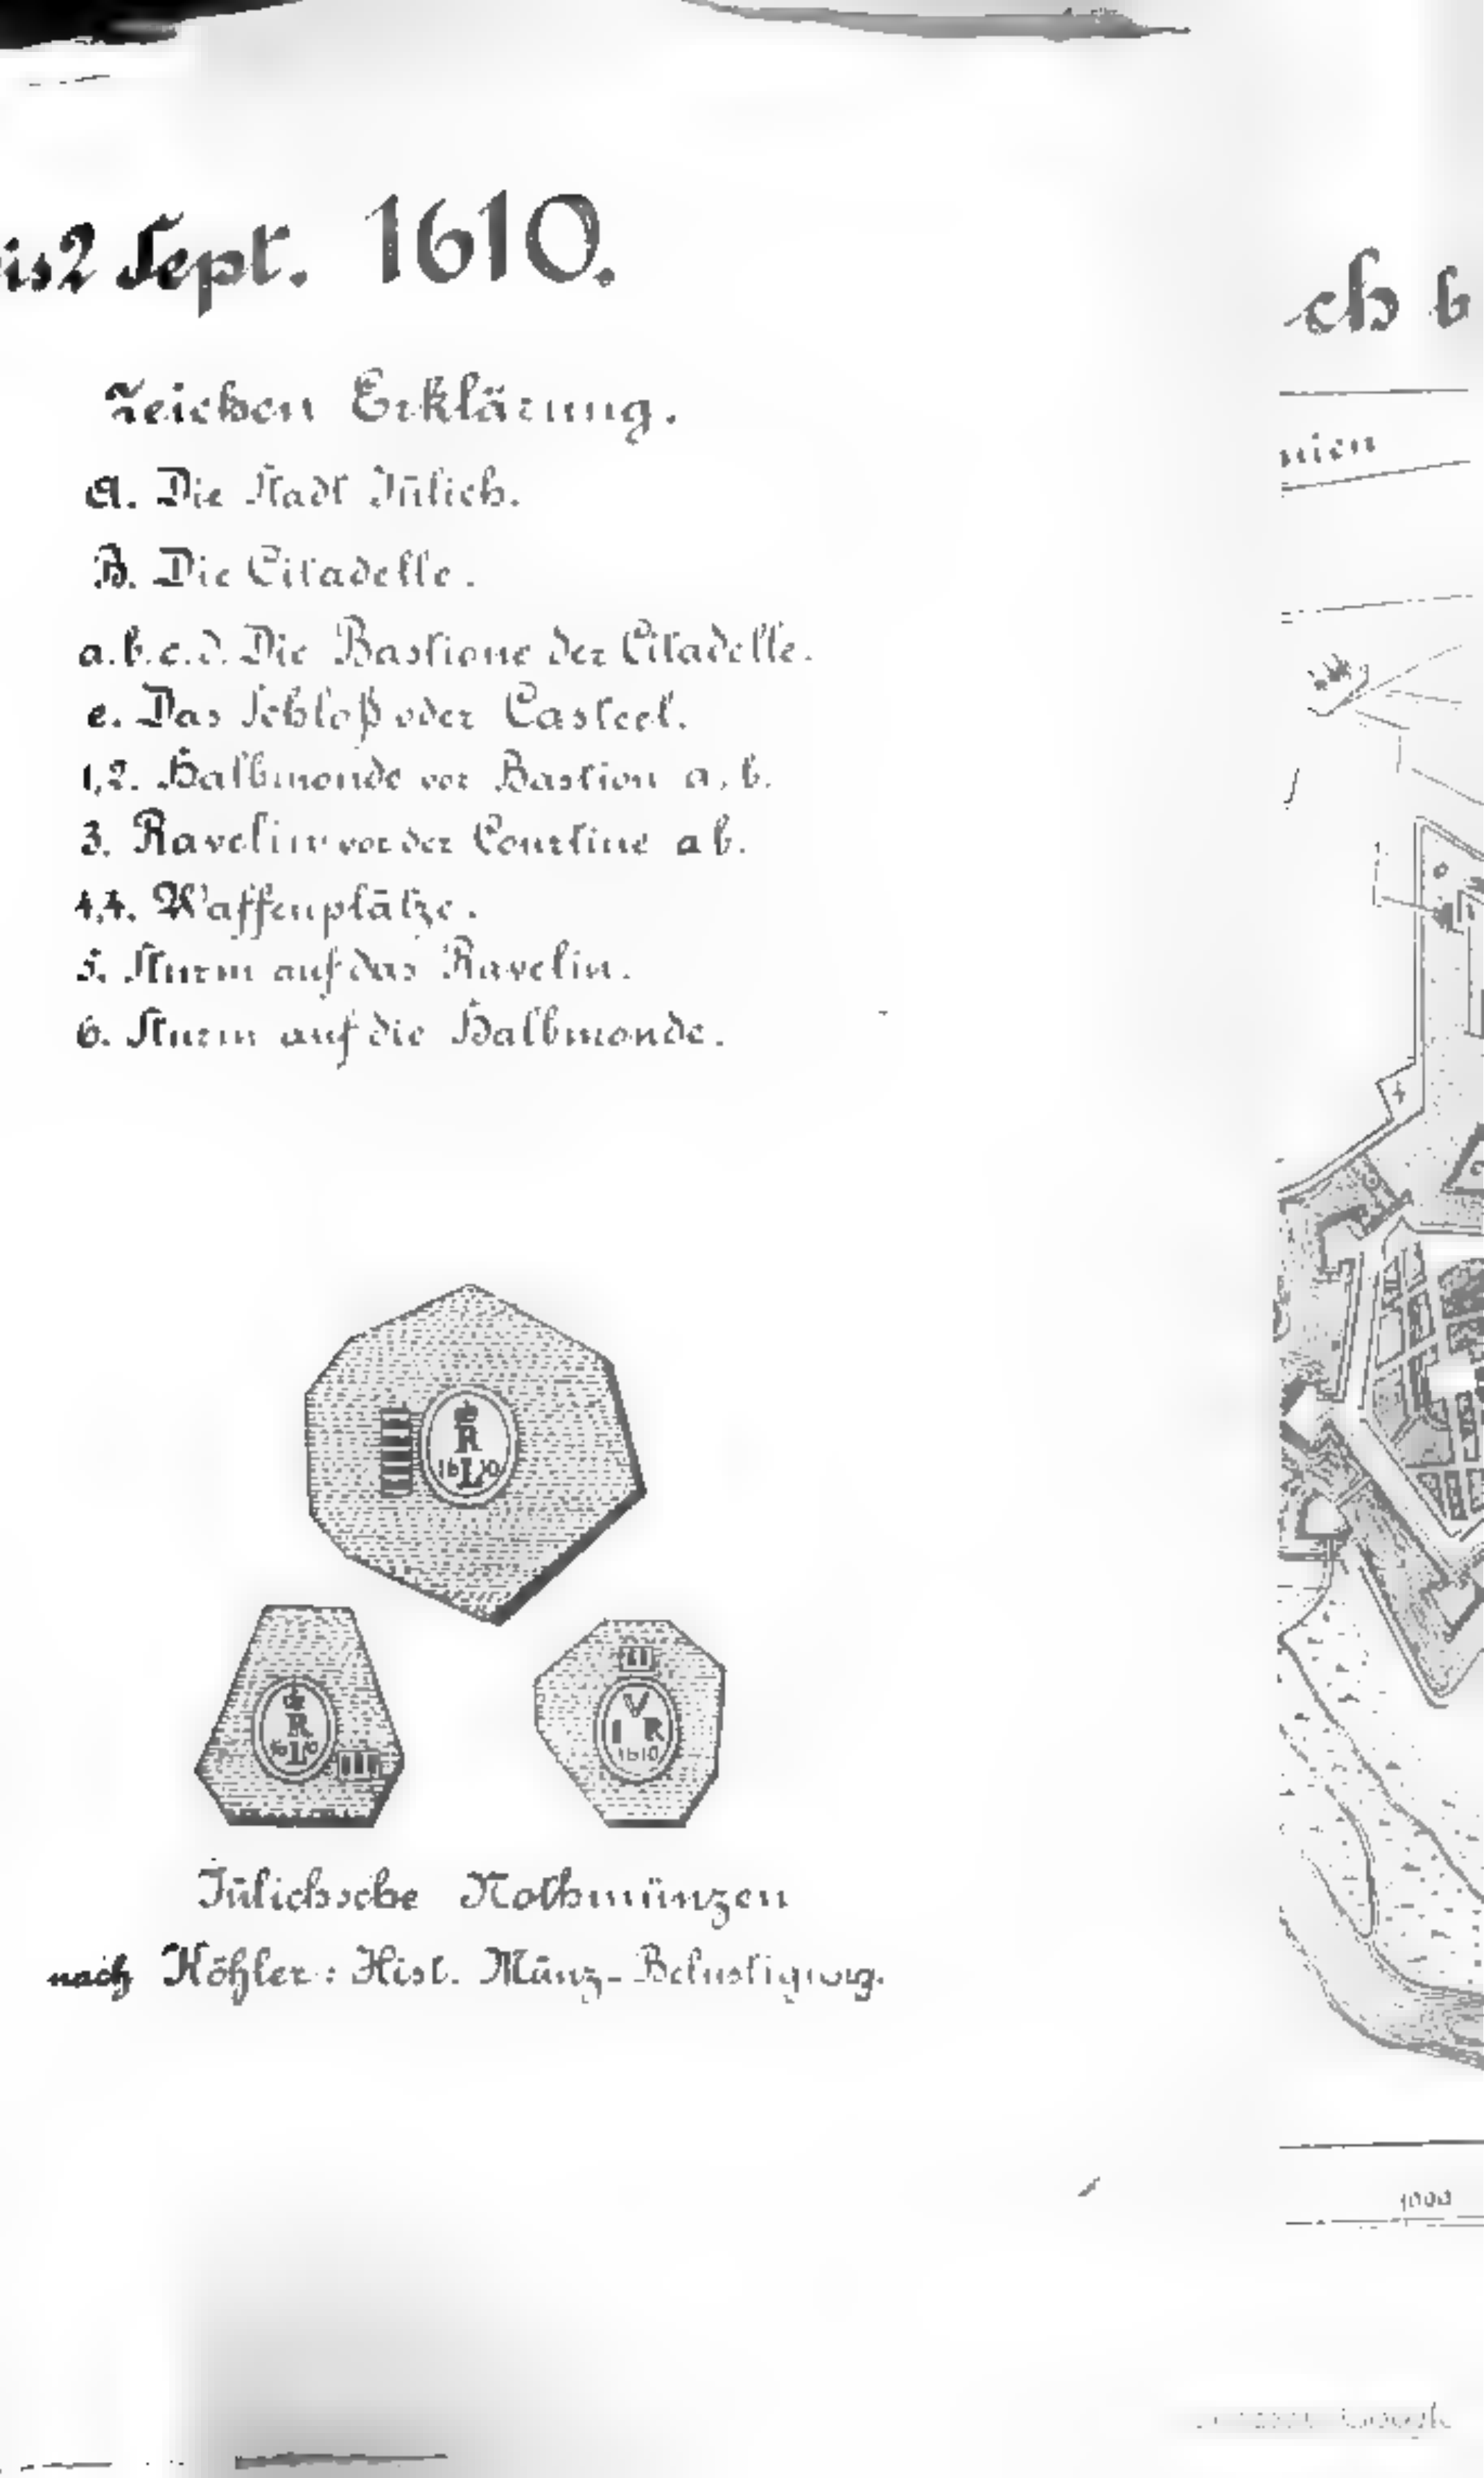 is 2 Sept. 1610.
Zeichen Erklärung.
A. Die Stadt Jülich.
B. Die Citadelle.
a. b. c. d. Die Bastione der Citadelle.
e. Das Schloß oder Casteel.
1,2. Halbmonde vor Bastion a, b.
3. Ravelin vor der Courtine ab.
4,4. Waffenplätze.
5. Sturm auf das Ravelin.
6. Sturm auf die Halbmonde.
R
1610
L
R
1610
L
III
III
V
I R
1610
Jülichsche Nothmünzen
nach Köhler: Hist. Münz-Belustigung.
ch b
nien
4
1000
Google